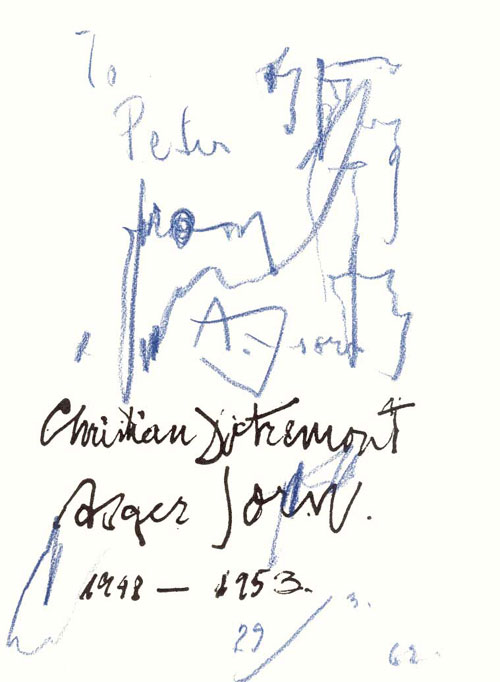 To
Peter
from
A. Jorn
Christian Dotremont
Asger Jorn.
1948 — 1953.
29/3.
62.